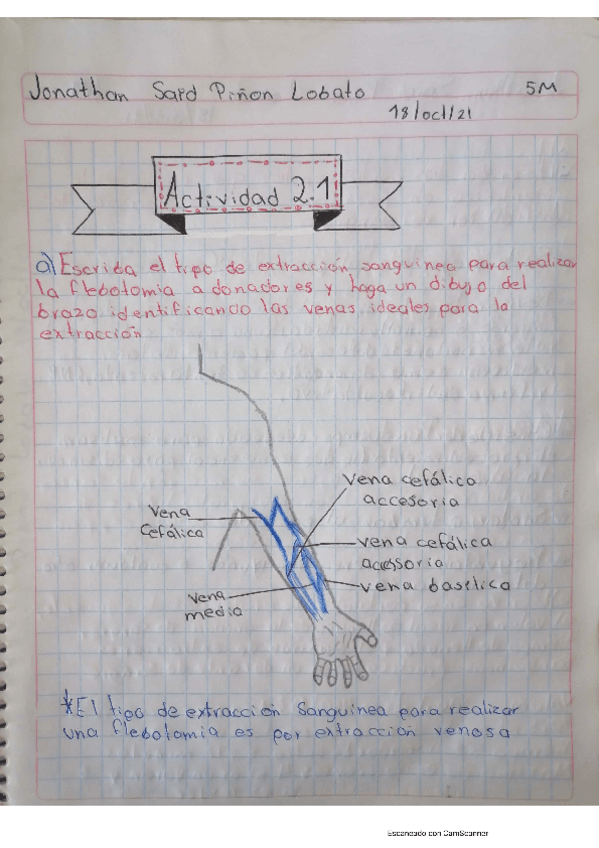 Jonathan Said Piñon Lobato 5M
18/oct/21
Actividad 2.1
a) Escriba el tipo de extracción sanguinea para realizar
la flebotomia a donadores y haga un dibujo del
brazo identificando las venas ideales para la
extracción
Vena cefálica
accesoria
Vena
Cefálica
vena cefálica
accesoria
vena basélica
vena
media
*El tipo de extracción sanguinea para realizar
una flebotomia es por extracción venosa
Escaneado con CamScanner